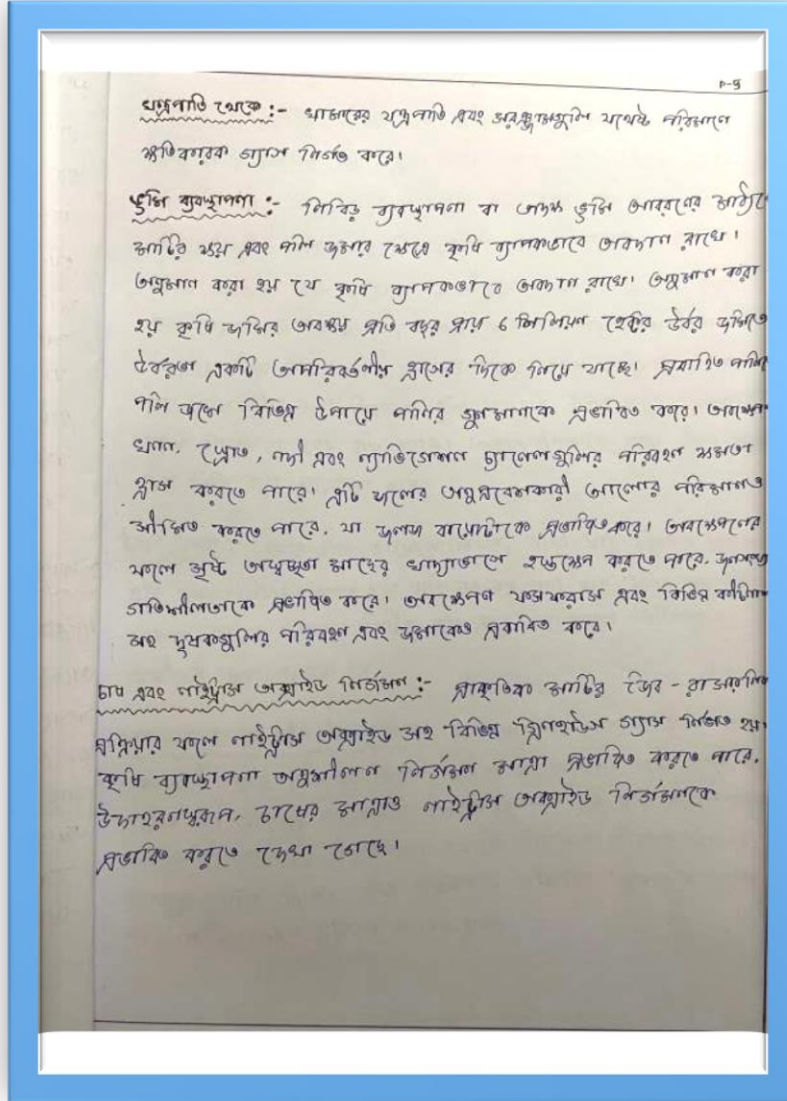 P-9
যন্ত্রপাতি থেকে :- খামারের যন্ত্রপাতি এবং সরঞ্জামগুলি যথেষ্ট পরিমাণে
ক্ষতিকারক গ্যাস নির্গত করে।
ভূমি ব্যবস্থাপনা :- নিবিড় ব্যবস্থাপনা বা অদক্ষ ভূমি আবরণের মাধ্যমে
মাটির ক্ষয় এবং পলি জমার ক্ষেত্রে কৃষি ব্যাপকভাবে অবদান রাখে।
অনুমান করা হয় যে কৃষি ব্যাপকভাবে অবদান রাখে। অনুমান করা
হয় কৃষি জমির অবক্ষয় প্রতি বছর প্রায় ৬ মিলিয়ন হেক্টর উর্বর জমিতে
উর্বরতা একটি অপরিবর্তনীয় হ্রাসের দিকে নিয়ে যাচ্ছে। প্রবাহিত পানিতে
পলি জমে বিভিন্ন উপায়ে পানির গুনমানকে প্রভাবিত করে। অবক্ষেপণ
খাল, স্রোত, নদী এবং ন্যাভিগেশন চ্যানেলগুলির পরিবহণ ক্ষমতা
হ্রাস করতে পারে। এটি জলের অনুপ্রবেশকারী আলোর পরিমাণও
সীমিত করতে পারে, যা জলজ বায়োটাকে প্রভাবিত করে। অবক্ষেপণের
ফলে সৃষ্ট অস্বচ্ছতা মাছের খাদ্যাভাসে হস্তক্ষেপ করতে পারে, জনসংখ্যা
গতিশীলতাকে প্রভাবিত করে। অবক্ষেপণ ফসফরাস এবং বিভিন্ন কীটনাশক
সহ দূষকগুলির পরিবহণ এবং জমাকেও প্রবাবিত করে।
চাষ এবং নাইট্রাস অক্সাইড নির্গমন :- প্রাকৃতিক মাটির জৈব - রাসায়নিক
প্রক্রিয়ার ফলে নাইট্রাস অক্সাইড সহ বিভিন্ন গ্রিনহাউস গ্যাস নির্গত হয়।
কৃষি ব্যবস্থাপনা অনুশীলন নির্গমন মাত্রা প্রভাবিত করতে পারে,
উদাহরণস্বরূপ, চাষের মাত্রাও নাইট্রাস অক্সাইড নির্গমনকে
প্রভাবিত করতে দেখা গেছে।